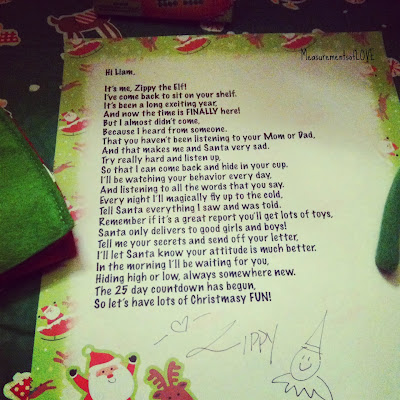 MeasurementsofLOVE
Hi Liam,
It's me, Zippy the Elf!
I've come back to sit on your shelf.
It's been a long exciting year,
And now the time is FINALLY here!
But I almost didn't come,
Because I heard from someone,
That you haven't been listening to your Mom or Dad,
And that makes me and Santa very sad.
Try really hard and listen up,
So that I can come back and hide in your cup.
I'll be watching your behavior every day,
And listening to all the words that you say.
Every night I'll magically fly up to the cold,
Tell Santa everything I saw and was told.
Remember if it's a great report you'll get lots of toys,
Santa only delivers to good girls and boys!
Tell me your secrets and send off your letter,
I'll let Santa know your attitude is much better.
In the morning I'll be waiting for you,
Hiding high or low, always somewhere new.
The 25 day countdown has begun,
So let's have lots of Christmasy FUN!
Zippy